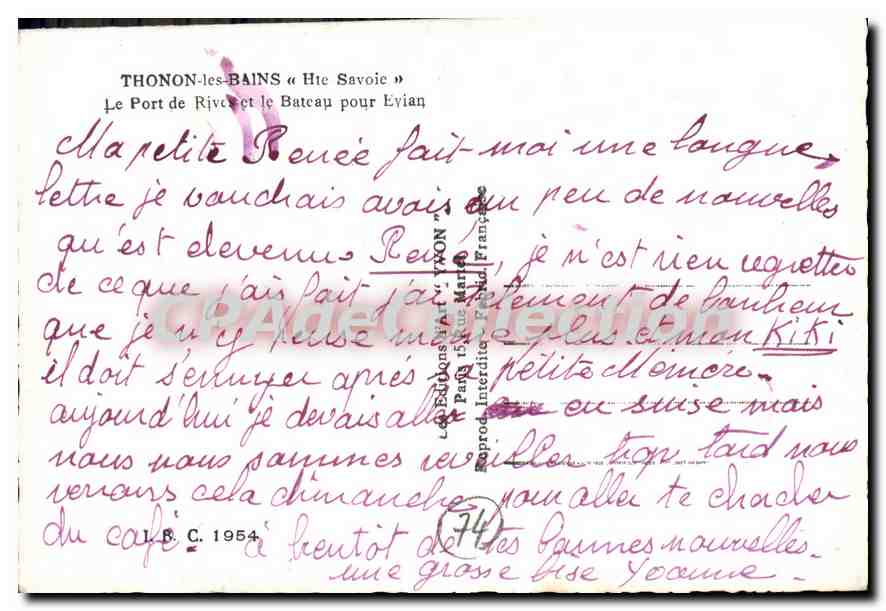 THONON-les-BAINS « Hte Savoie »
Le Port de Rives et le Bateau pour Evian
Ma petite Renée fait-moi une longue
lettre je voudrais avoir un peu de nouvelles
qu'est devenu René, je n'est rien regretter
de ce que j'ais fait j'ai telement de bonheur
que je n'y pense même plus et mon KiKi
il doit s'ennuyer après petite Mémère.
aujourd'hui je devais aller en suise mais
nous nous sommes reveilles trop tard nous
verrons cela dimanche pour aller te chercher
du café. à bientôt de tes bonnes nouvelles.
une grosse bise Yvonne.
Les Editions d'Art "YVON"
Paris 15 Rue Martel
Reprod. Interdite Fabric. Française
I. S. C. 1954
74
CPAdeCollection